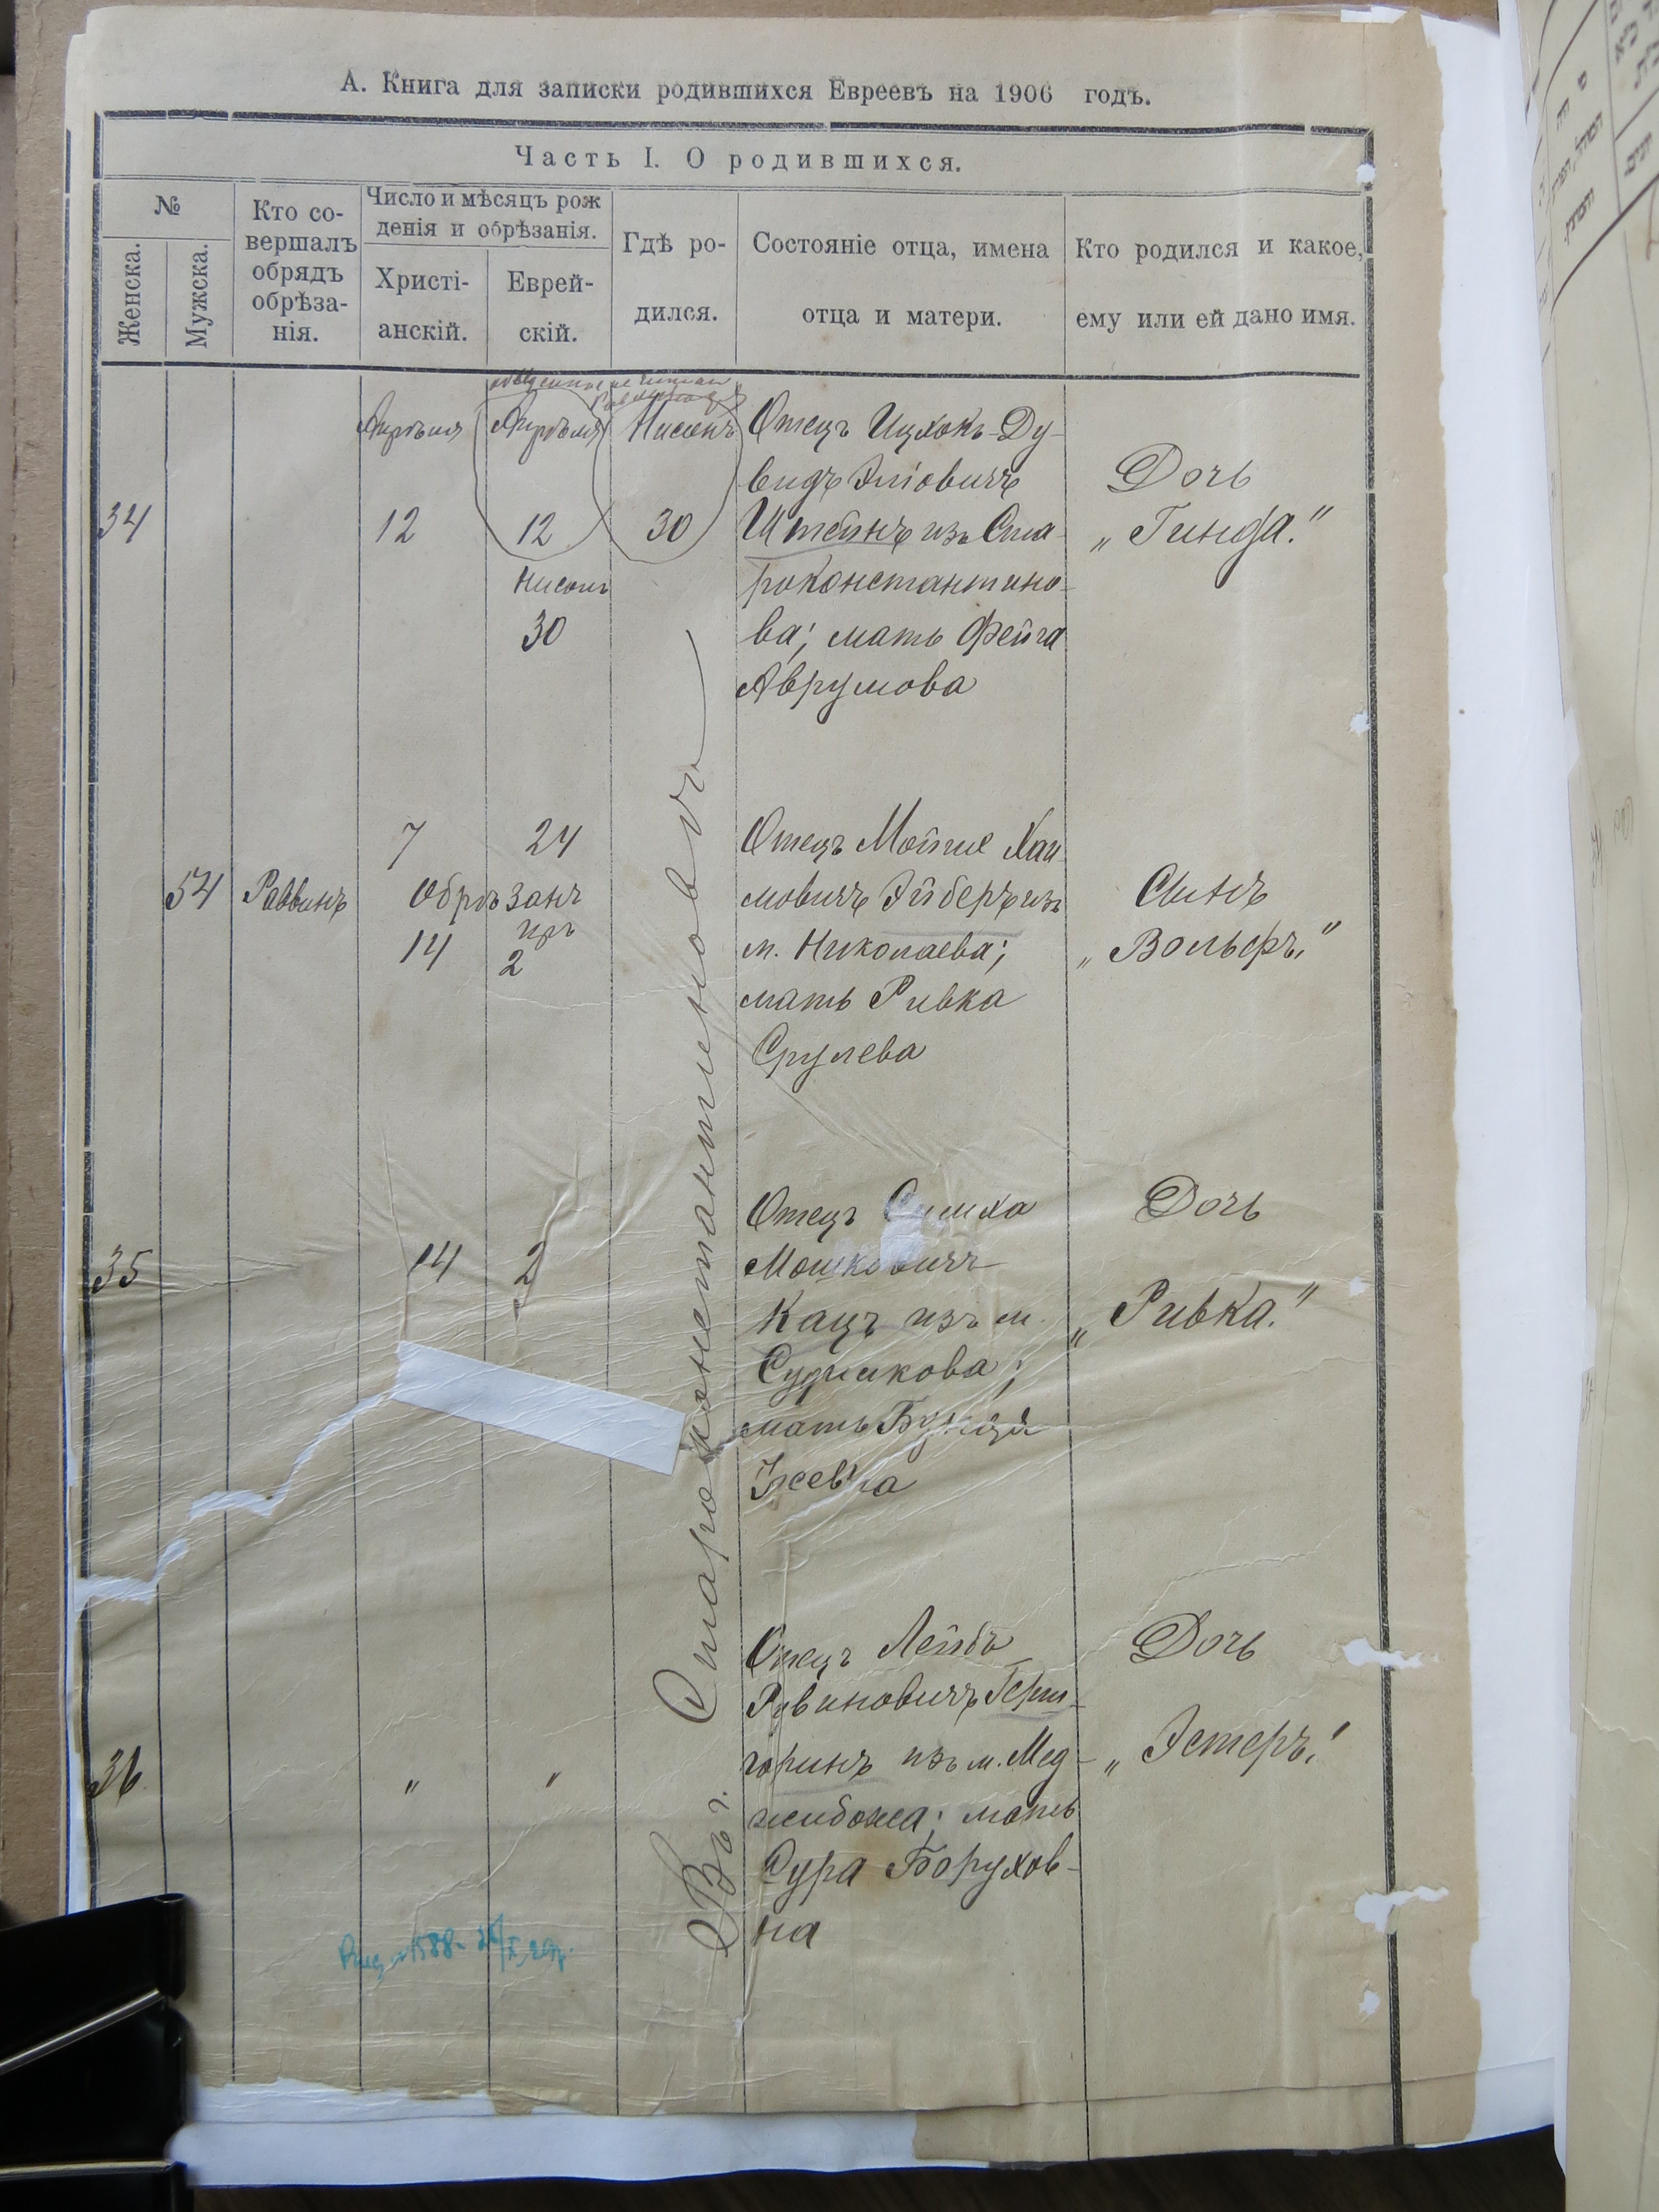 А. Книга для записки родившихся Евреевъ на 1906 годъ.
Часть I. О родившихся.
№
Женска.
Мужска.
Кто со-
вершалъ
обрядъ
обрѣза-
нія.
Число и мѣсяцъ рож
денія и обрѣзанія.
Христі-
анскій.
Еврей-
скій.
Гдѣ ро-
дился.
Состояніе отца, имена
отца и матери.
Кто родился и какое,
ему или ей дано имя.
34
Апрѣля
12
Апрѣля
12
Нисонъ
30
Нисонъ
30
Отецъ Ицхокъ-Ду-
видъ Эліовичъ
Штейнъ изъ Ста-
роконстантино-
ва; мать Фейга
Аврумова
Дочь
„Гинда."
54
Раввинъ
7
24
Обрѣзанъ
14
2
Отецъ Мойше Хаи-
мовичъ Эйберъ изъ
м. Николаева;
мать Ривка
Срулева
Сынъ
„Вольфъ."
35
14
2
Отецъ Симха
Мошковичъ
Кацъ изъ м.
Судилкова;
мать
Дочь
„Ривка."
36
"
"
Отецъ Лейбъ
Рувиновичъ
изъ м. Мед-
жибожа; мать
Сура Борухов-
на
Дочь
„Эстеръ."
Въ г. Староконстантиновъ